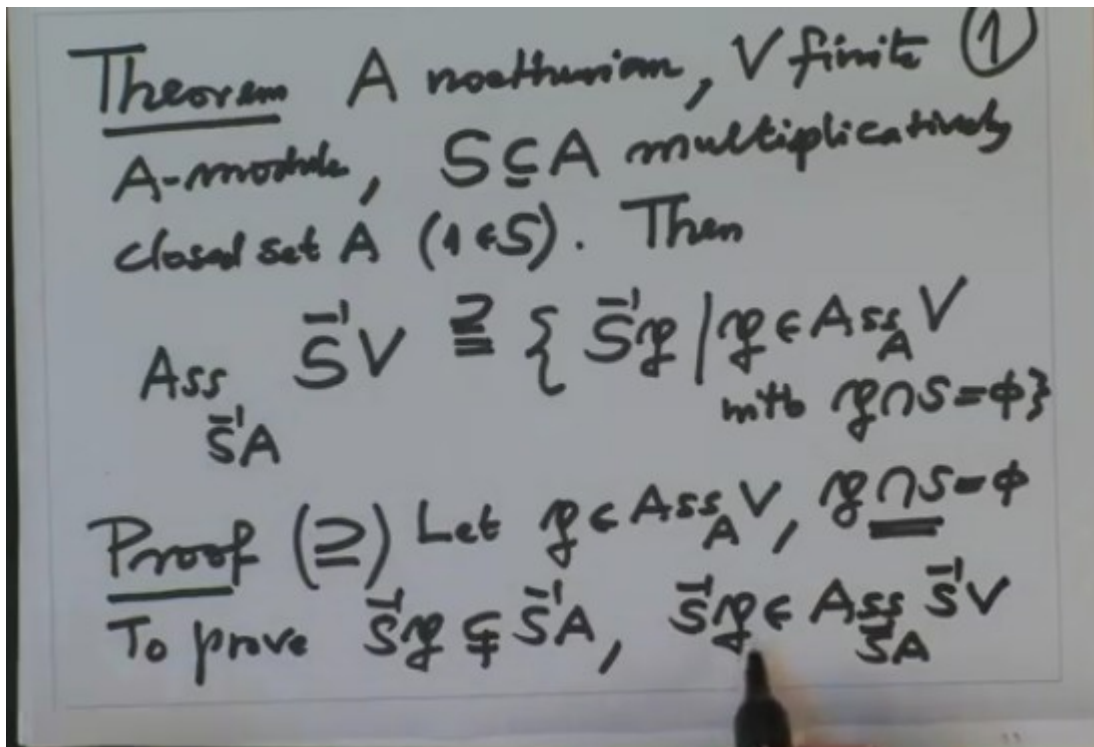 Theorem A noetherian, V finite ①
A-module, S ⊆ A multiplicatively
closed set A (1 ∈ S). Then
Ass_{S⁻¹A} S⁻¹V ⊇= { S⁻¹𝔭 | 𝔭 ∈ Ass_A V
with 𝔭 ∩ S = ϕ }
Proof (⊇) Let 𝔭 ∈ Ass_A V, 𝔭 ∩ S = ϕ
To prove S⁻¹𝔭 ⊊ S⁻¹A, S⁻¹𝔭 ∈ Ass_{S⁻¹A} S⁻¹V